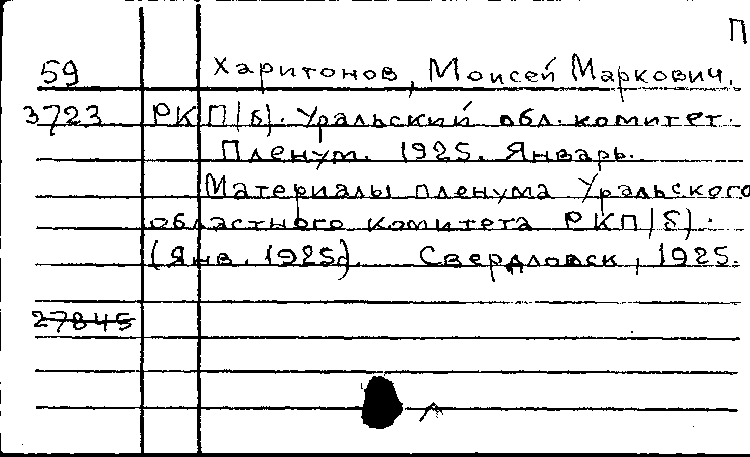 П
59 Харитонов, Моисей Маркович.
3723 РКП(б). Уральский обл. комитет.
Пленум. 1925. Январь.
Материалы пленума Уральского
областного комитета РКП(б).
(Янв. 1925). Свердловск, 1925.
27845